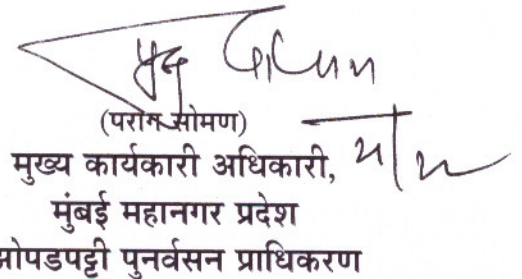 (पराग सोमण)
मुख्य कार्यकारी अधिकारी,
मुंबई महानगर प्रदेश
झोपडपट्टी पुनर्वसन प्राधिकरण